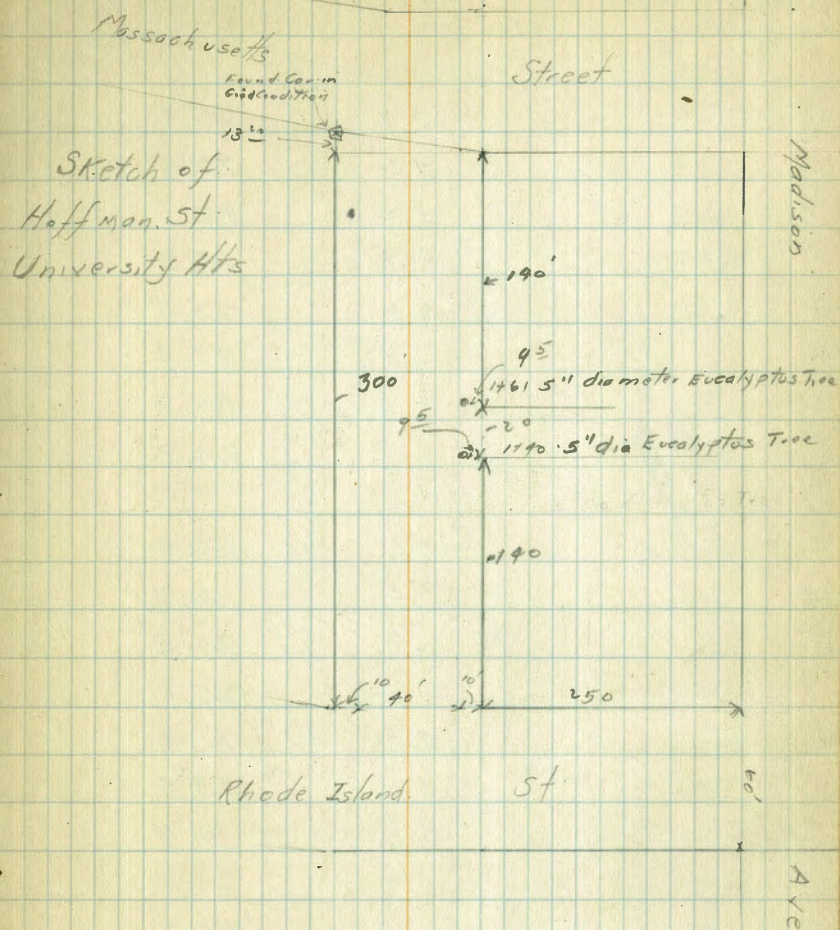 Massachusetts
Street
Found Cor in
Good Condition
13 10
Sketch of
Hoffman. St
University Hts
Madison
190'
9 5
1+61 5" diameter Eucalyptus Tree
300'
20
9 5
1+40 5" dia Eucalyptus Tree
140
10 40' 10'
250
Rhode Island. St.
60'
Ave